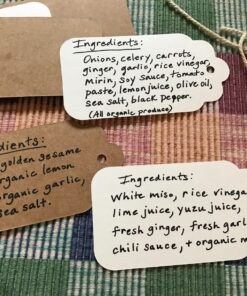 Ingredients:
Onions, celery, carrots,
ginger, garlic, rice vinegar,
Mirin, Soy Sauce, tomato
paste, lemon juice, olive oil,
sea salt, black pepper.
(All organic produce)
dients:
golden sesame
organic lemon
organic garlic,
sea salt.
Ingredients:
White miso, rice vinega
lime juice, yuzu juice,
fresh ginger, fresh garl
chili sauce, + organic m